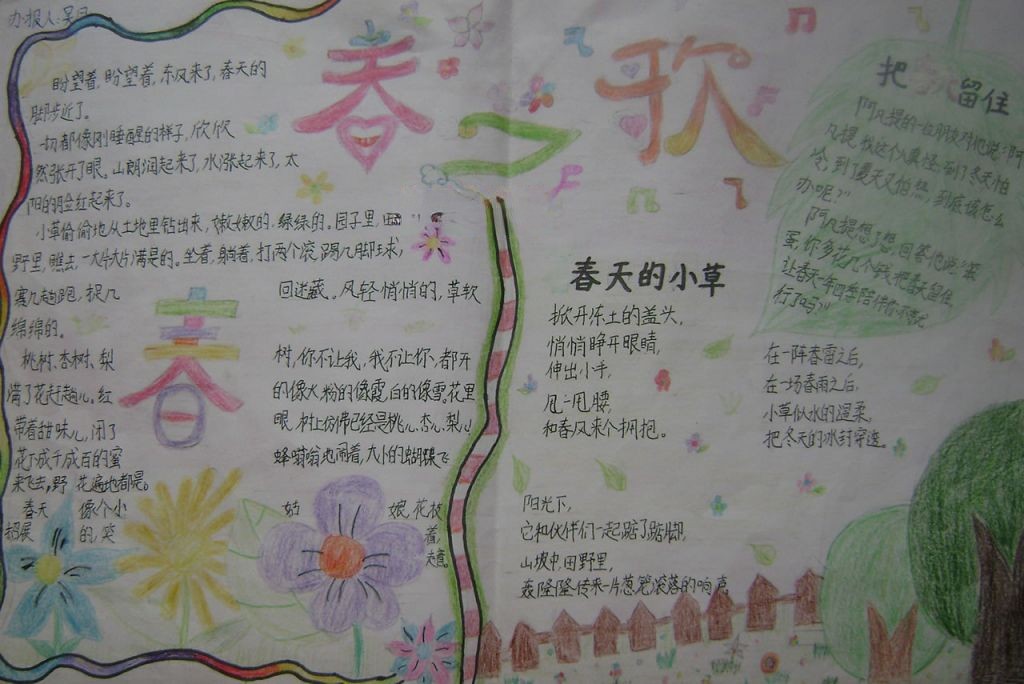 办报人:
春之歌
盼望着,盼望着,东风来了,春天的
脚步近了。
一切都像刚睡醒的样子,欣欣
然张开了眼。山朗润起来了,水涨起来了,太
阳的脸红起来了。
小草偷偷地从土地里钻出来,嫩嫩的,绿绿的。园子里,田
野里,瞧去,一大片大片满是的。坐着,躺着,打两个滚,踢几脚球,
赛几趟跑,捉几 回迷藏。风轻悄悄的,草软
绵绵的。
桃树、杏树、梨 树,你不让我,我不让你,都开
满了花赶趟儿。红 的像火,粉的像霞,白的像雪。花里
带着甜味儿,闭了 眼,树上仿佛已经是桃儿、杏儿、梨儿!
花下成千成百的蜜 蜂嗡嗡地闹着,大小的蝴蝶飞
来飞去,野 花遍地都是。
春天 像个小 姑 娘,花枝
招展 的,笑 着,
走着。
春
春天的小草
掀开冻土的盖头,
悄悄睁开眼睛,
伸出小手,
甩一甩腰,
和春风来个拥抱。
在一阵春雷之后,
在一场春雨之后,
小草似水的温柔,
把冬天的冰封穿透。
阳光下,
它和伙伴们一起踮了踮脚,
山坡中,田野里,
轰隆隆传来一片葱茏滚落的响声
把 留住
阿凡提的一位朋友对他说:"阿
凡提,我这个人真怪,到了冬天怕
冷,到了夏天又怕热,到底该怎么
办呢?"
阿凡提想了想,回答他说:
你多花几个钱,把春天留住,
让春天一年四季陪伴你
行了吗?"